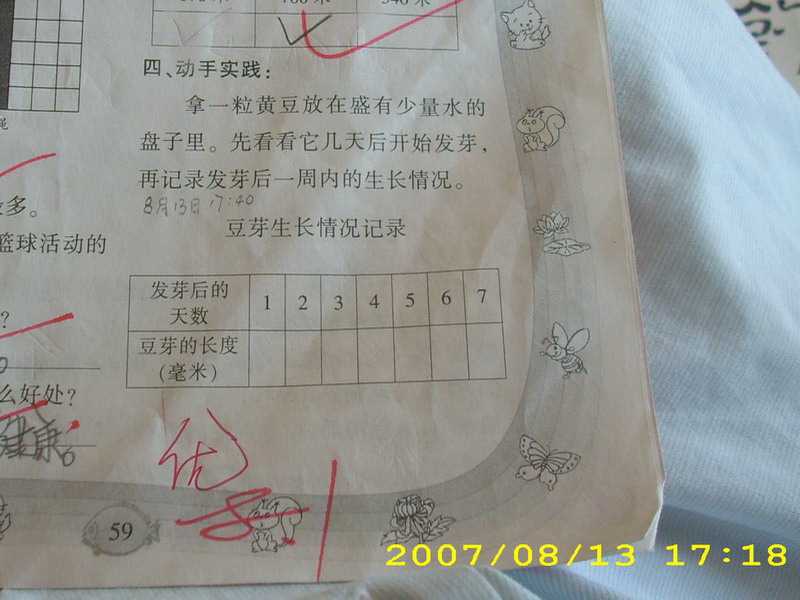 四、动手实践：
拿一粒黄豆放在盛有少量水的
盘子里。先看看它几天后开始发芽，
再记录发芽后一周内的生长情况。
8月13日 17:40
豆芽生长情况记录
发芽后的天数 1 2 3 4 5 6 7
豆芽的长度
(毫米)
多。
篮球活动的
?
么好处?
健康。
优
59
2007/08/13 17:18